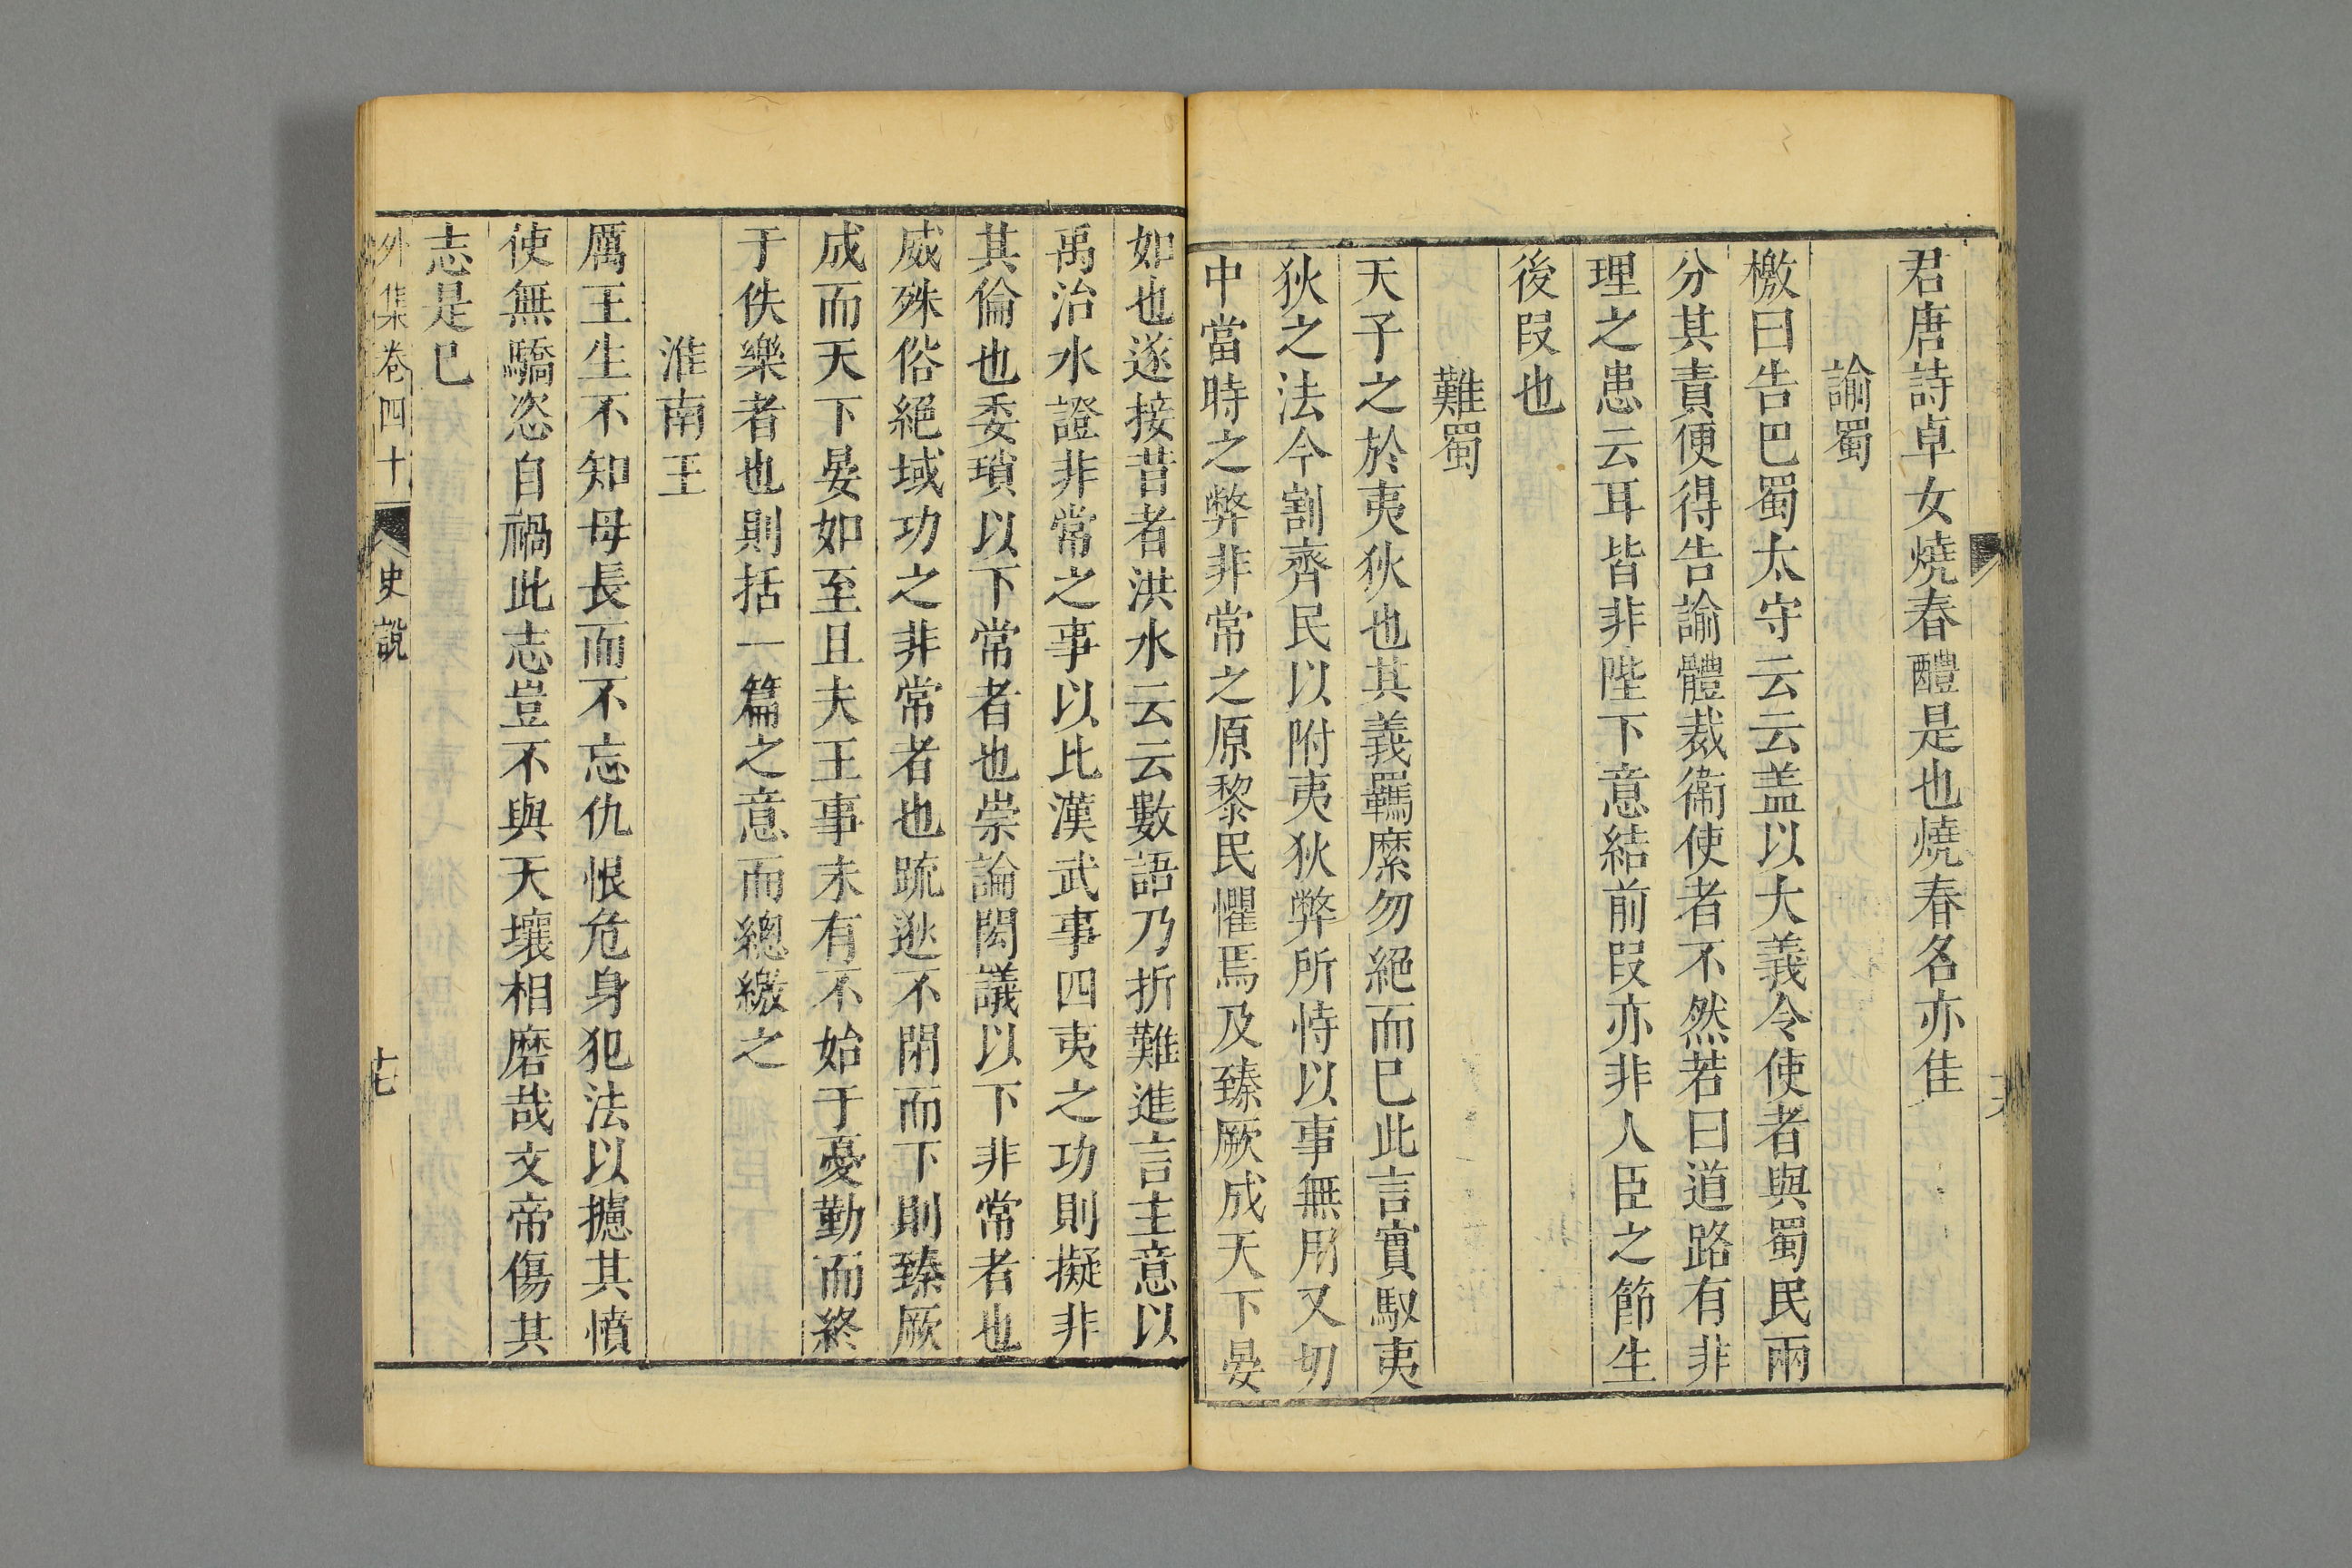 君唐詩卓女燒春醴是也燒春名亦佳
諭蜀
檄曰告巴蜀太守云云盖以大義令使者與蜀民兩
分其責便得告諭體裁衞使者不然若曰道路有非
理之患云耳皆非陛下意結前叚亦非人臣之節生
後叚也
難蜀
天子之於夷狄也其義羈縻勿絕而已此言實馭夷
狄之法今割齊民以附夷狄弊所恃以事無用又切
中當時之弊非常之原黎民懼焉及臻厥成天下晏
如也遂接昔者洪水云云數語乃折難進言主意以
禹治水證非常之事以比漢武事四夷之功則擬非
其倫也委瑣以下常者也崇論閎議以下非常者也
威殊俗絕域功之非常者也疏逖不閉而下則臻厥
成而天下晏如至且夫王事未有不始于憂勤而終
于佚樂者也則括一篇之意而總繳之
淮南王
厲王生不知母長而不忘仇恨危身犯法以攄其憤
使無驕恣自禍此志豈不與天壤相磨哉文帝傷其
志是已
外集卷四十一 史說 十七